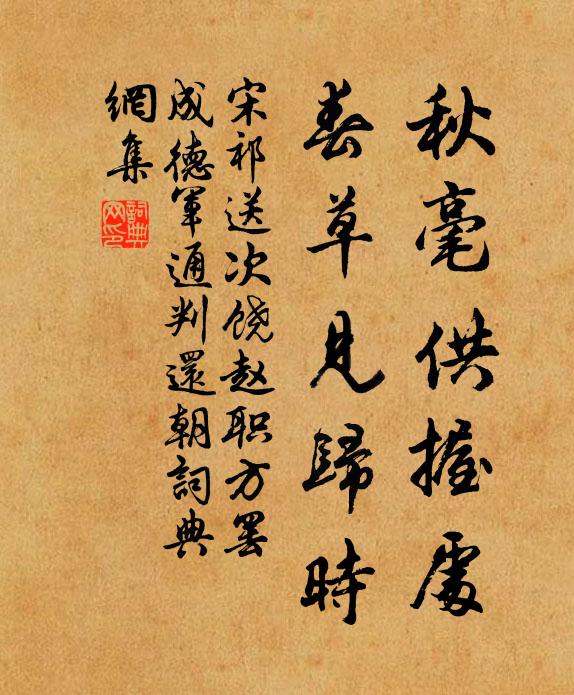 秋毫供握處
春草見歸時
宋祁送次饶赵职方罢
成德軍通判還朝詞典
網集
詞典網印